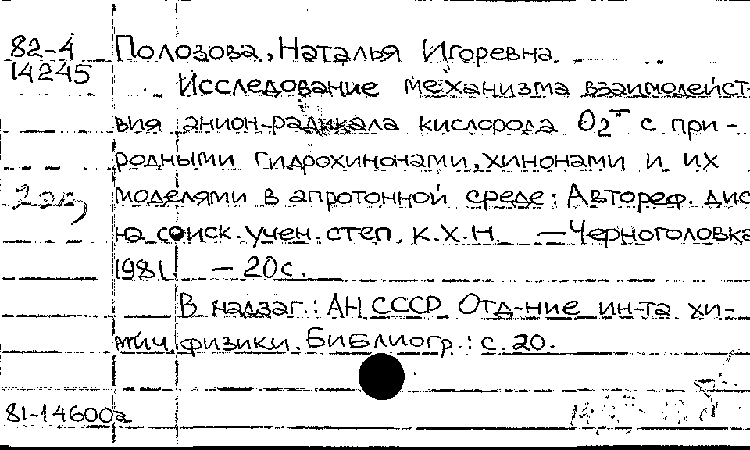 82-4 Полозова, Наталья Игоревна.
14245
Исследование механизма взаимодейст-
вия анион-радикала кислорода O2⁻ с при-
родными гидрохинонами, хинонами и их
2 эк, моделями в апротонной среде: Автореф. дис
на соиск. учен. степ. к.х.н. — Черноголовка
1981. — 20 с.
В надзаг.: АН СССР. Отд-ние ин-та хи-
мич. физики. Библиогр.: с. 20.
81-14600а